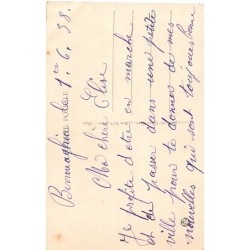 le 1er. 6. 38.
Ma chère Elise
Je profite d'être en marche
et de passer dans une petite
ville pour te donner de mes
nouvelles qui sont toujours bonne